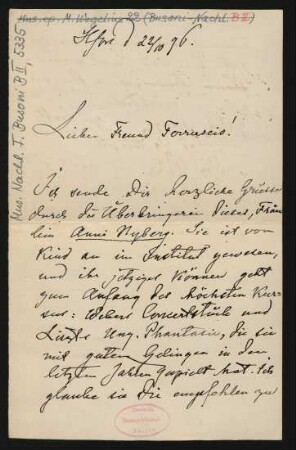 Mus. ep. M. Wegelius 22 (Busoni-Nachl. B II)
Mus. Nachl. F. Busoni B II, 5335
H:fors d 22/IV 96.
Lieber Freund Ferruccio!
Ich sende Dir herzliche Grüsse
durch die Überbringerin dieses, Fräu
lein Anni Nyberg. Sie ist von
Kind an im Institut gewesen,
und ihr jetziges Können geht
zum Anfang des höchsten Kur-
sus: Webers Concertstück und
Liszts Ung. Phantasie, die sie
mit gutem Gelingen in den
letzten Jahren gespielt hat. Ich
glaube sie Dir empfehlen zu